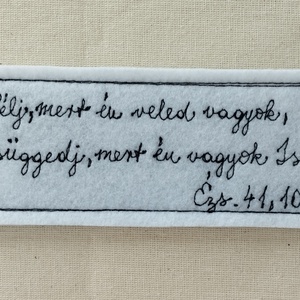 élj, mert én veled vagyok,
süggedj, mert én vagyok Is
Ézs. 41, 10